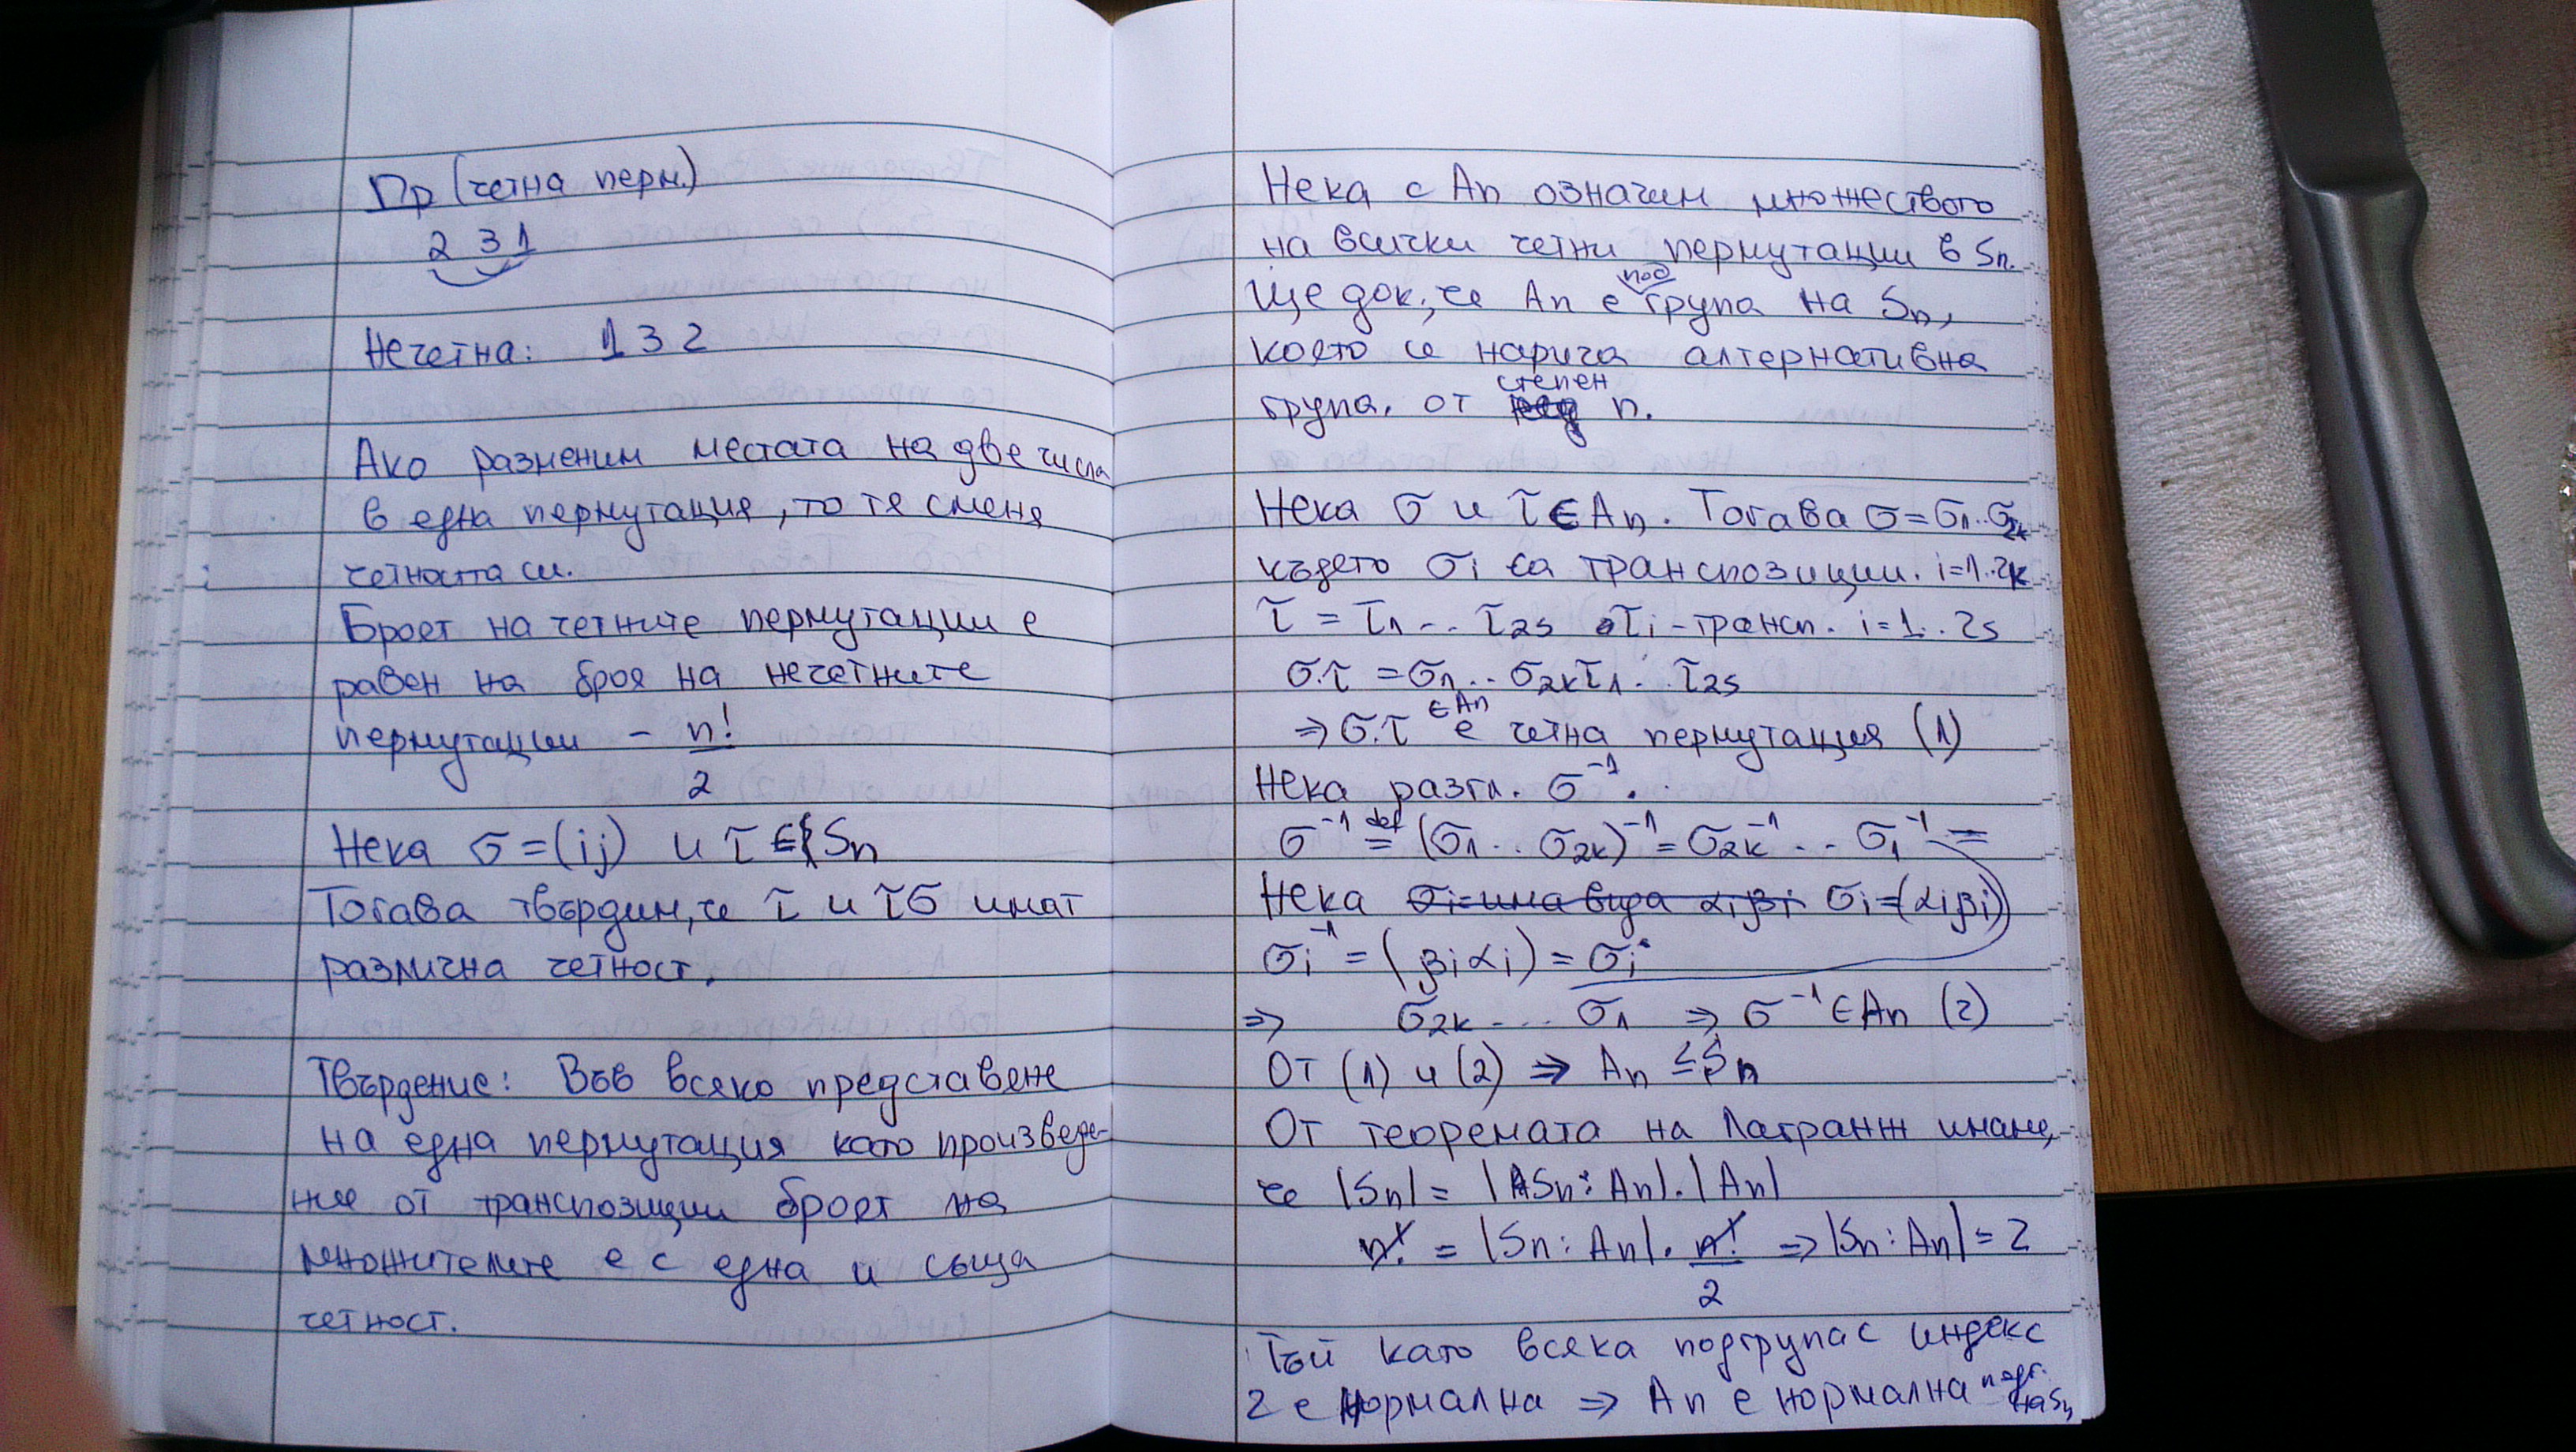 Пр (четна перм.)
2 3 1
Нечетна: 1 3 2
Ако разменим местата на две числа
в една пермутация, то тя сменя
четността си.
Броят на четните пермутации е
равен на броя на нечетните
пермутации - n!/2
Нека σ=(ij) и τ∈Sn
Тогава твърдим, че τ и τσ имат
различна четност.
Твърдение: Във всяко представяне
на една пермутация като произведе-
ние от транспозиции броят на
множителите е с една и съща
четност.
Нека с An означим множеството
на всички четни пермутации в Sn.
Ще док, че An е подгрупа на Sn,
която се нарича алтернативна
група, от степен n.
Нека σ и τ∈An. Тогава σ=σ1..σ2k
където σi са транспозиции. i=1..2k
τ = τ1... τ2s τi - трансп. i=1..2s
σ.τ = σ1... σ2kτ1... τ2s
⇒ σ.τ ∈An е четна пермутация (1)
Нека разгл. σ⁻¹.
σ⁻¹ def= (σ1...σ2k)⁻¹ = σ2k⁻¹... σ1⁻¹ =
Нека σi=(αiβi)
σi⁻¹ = (βiαi) = σi
⇒ σ2k.... σ1 ⇒ σ⁻¹∈An (2)
От (1) и (2) ⇒ An ≤ Sn
От теоремата на Лагранж имаме,
че |Sn| = |Sn:An|.|An|
n! = |Sn:An|. n!/2 ⇒ |Sn:An|=2
Тъй като всяка подгрупа с индекс
2 е нормална ⇒ An е нормална подг. на Sn